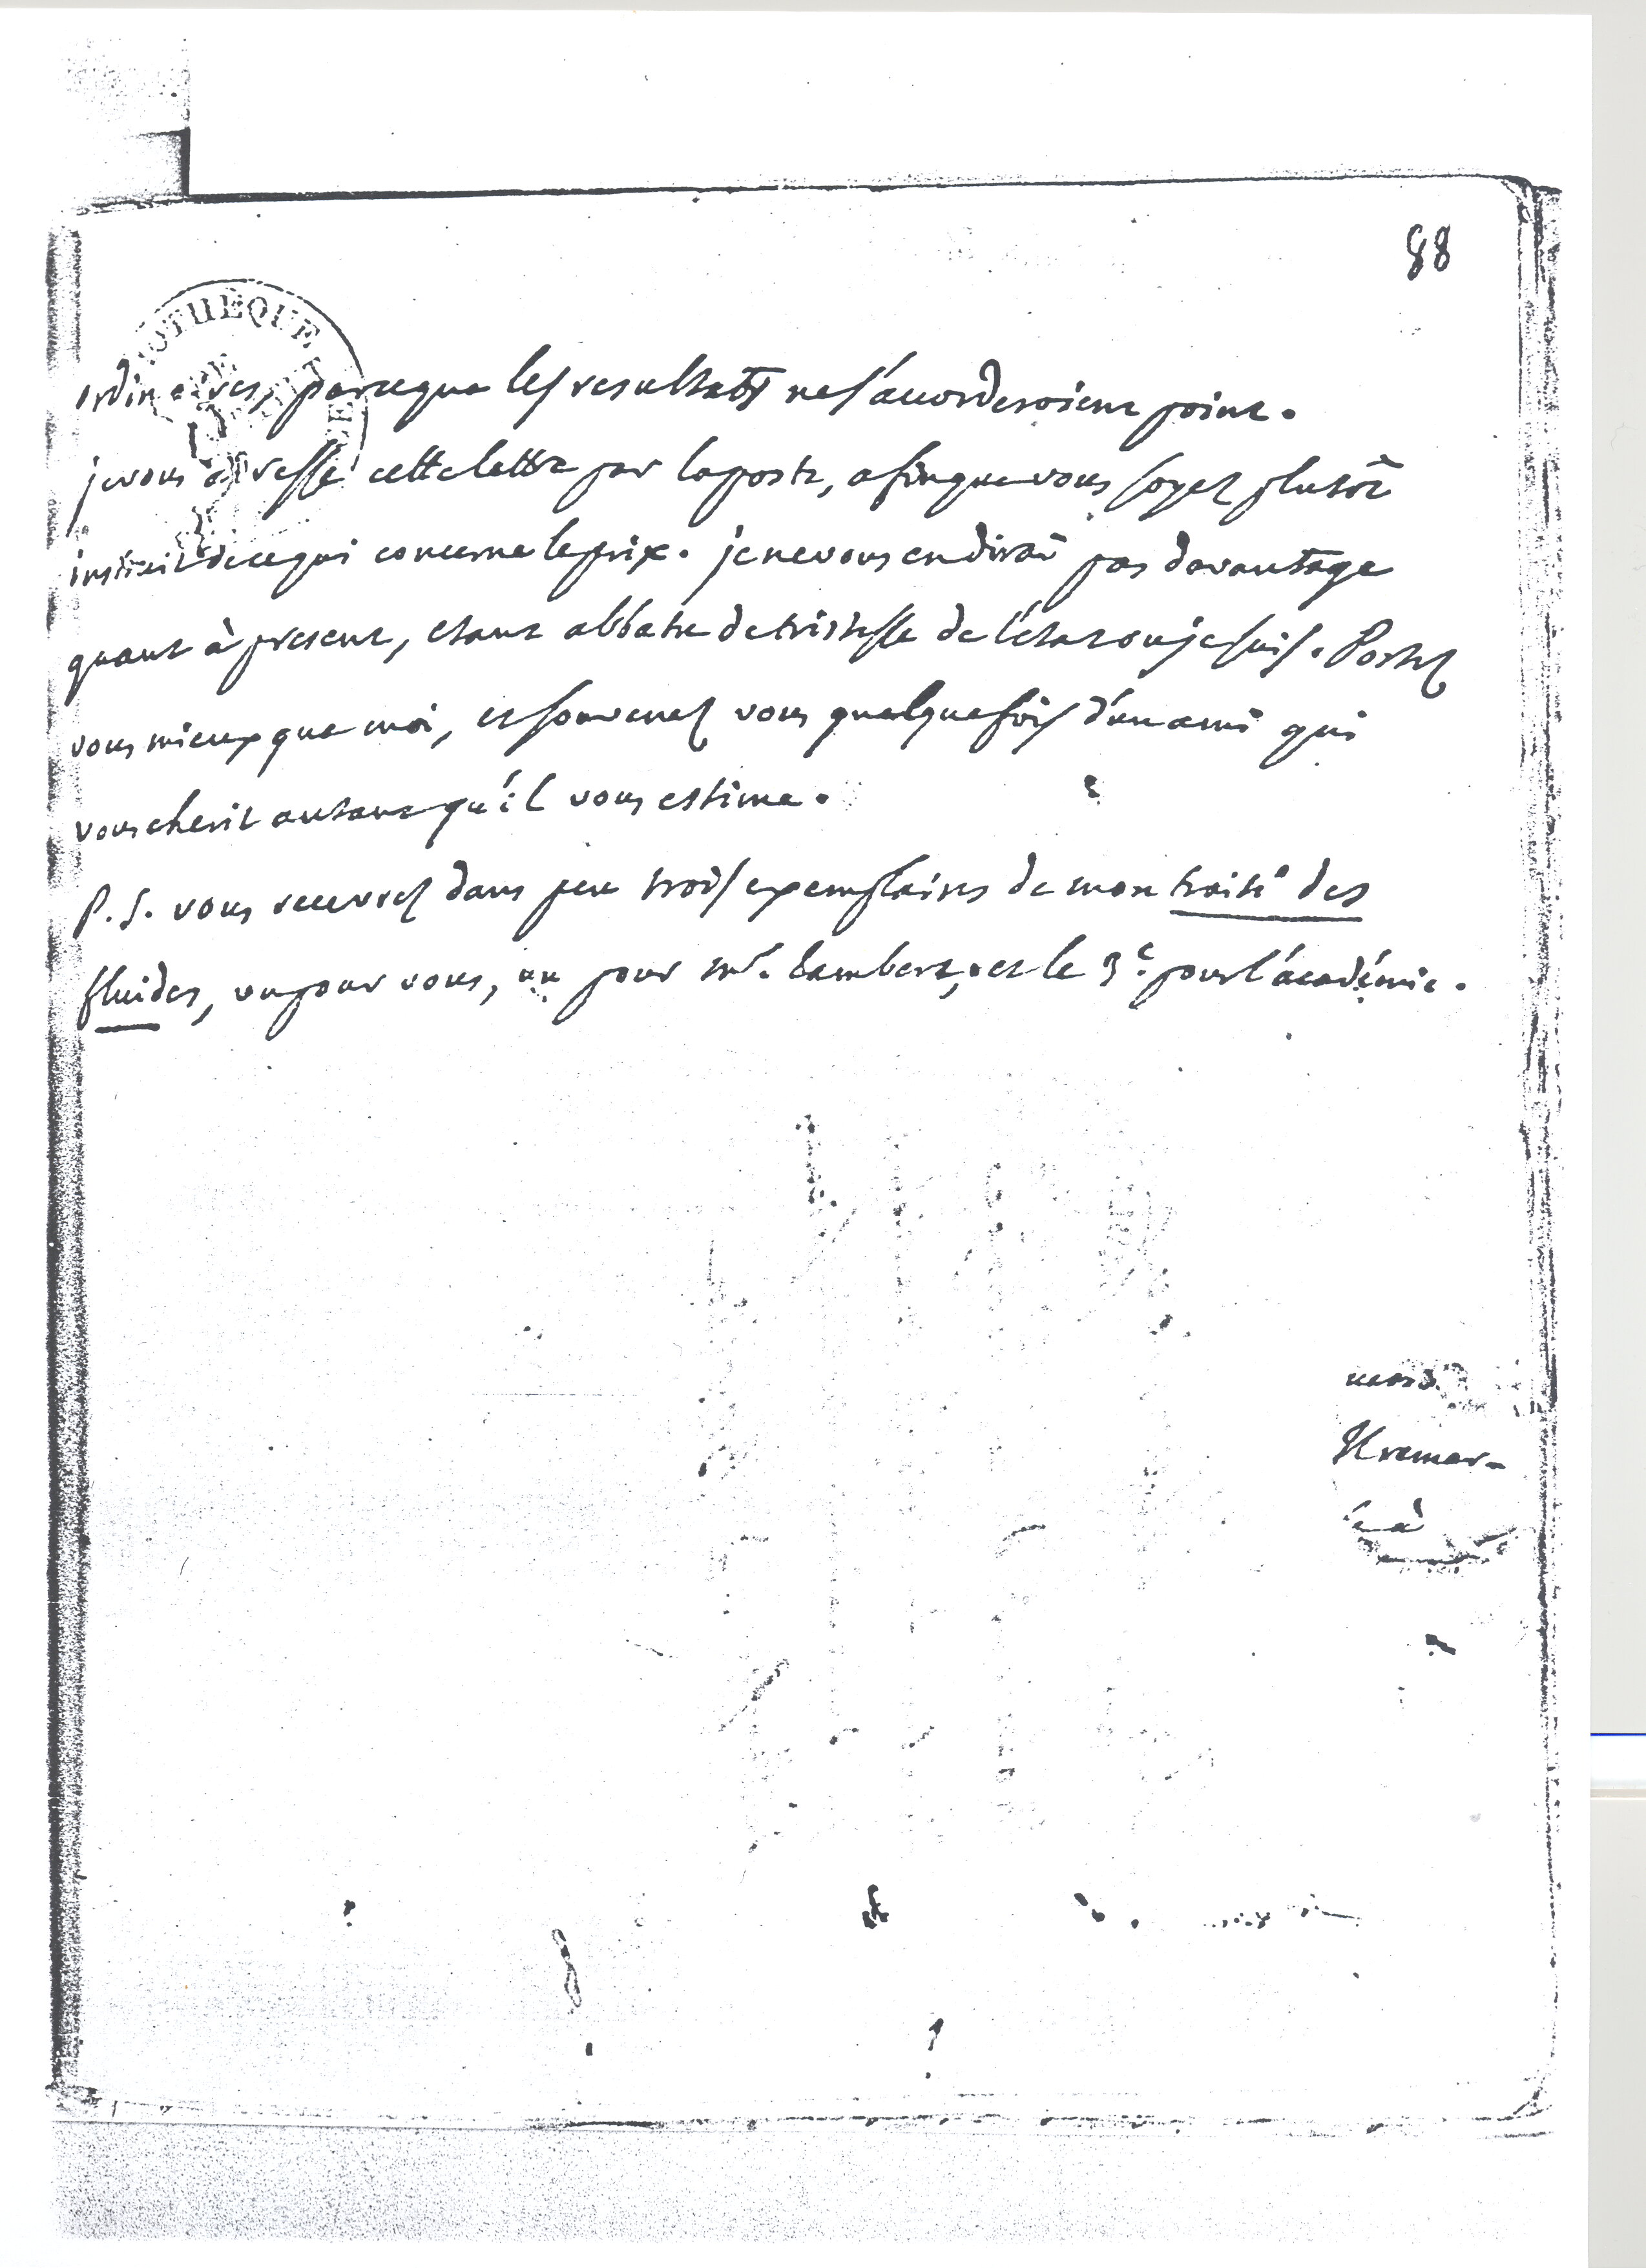 88
BIBLIOTHEQUE
ordinaires, parceque les resultats ne s'accorderoient point.
je vous adresse cette lettre par la poste, afin que vous soyez plutôt
instruit de ce qui concerne le prix. je ne vous en dirai pas davantage
quant à present, etant abbatu de tristesse de l'état ou je suis. Portez
vous mieux que moi, et souvenez vous quelquefois d'un ami qui
vous cherit autant qu'il vous estime.
P.S. vous recevrez dans peu trois exemplaires de mon traité des
fluides, un pour vous, un pour mr. Lambert, et le 3e. pour l'académie.
remar-